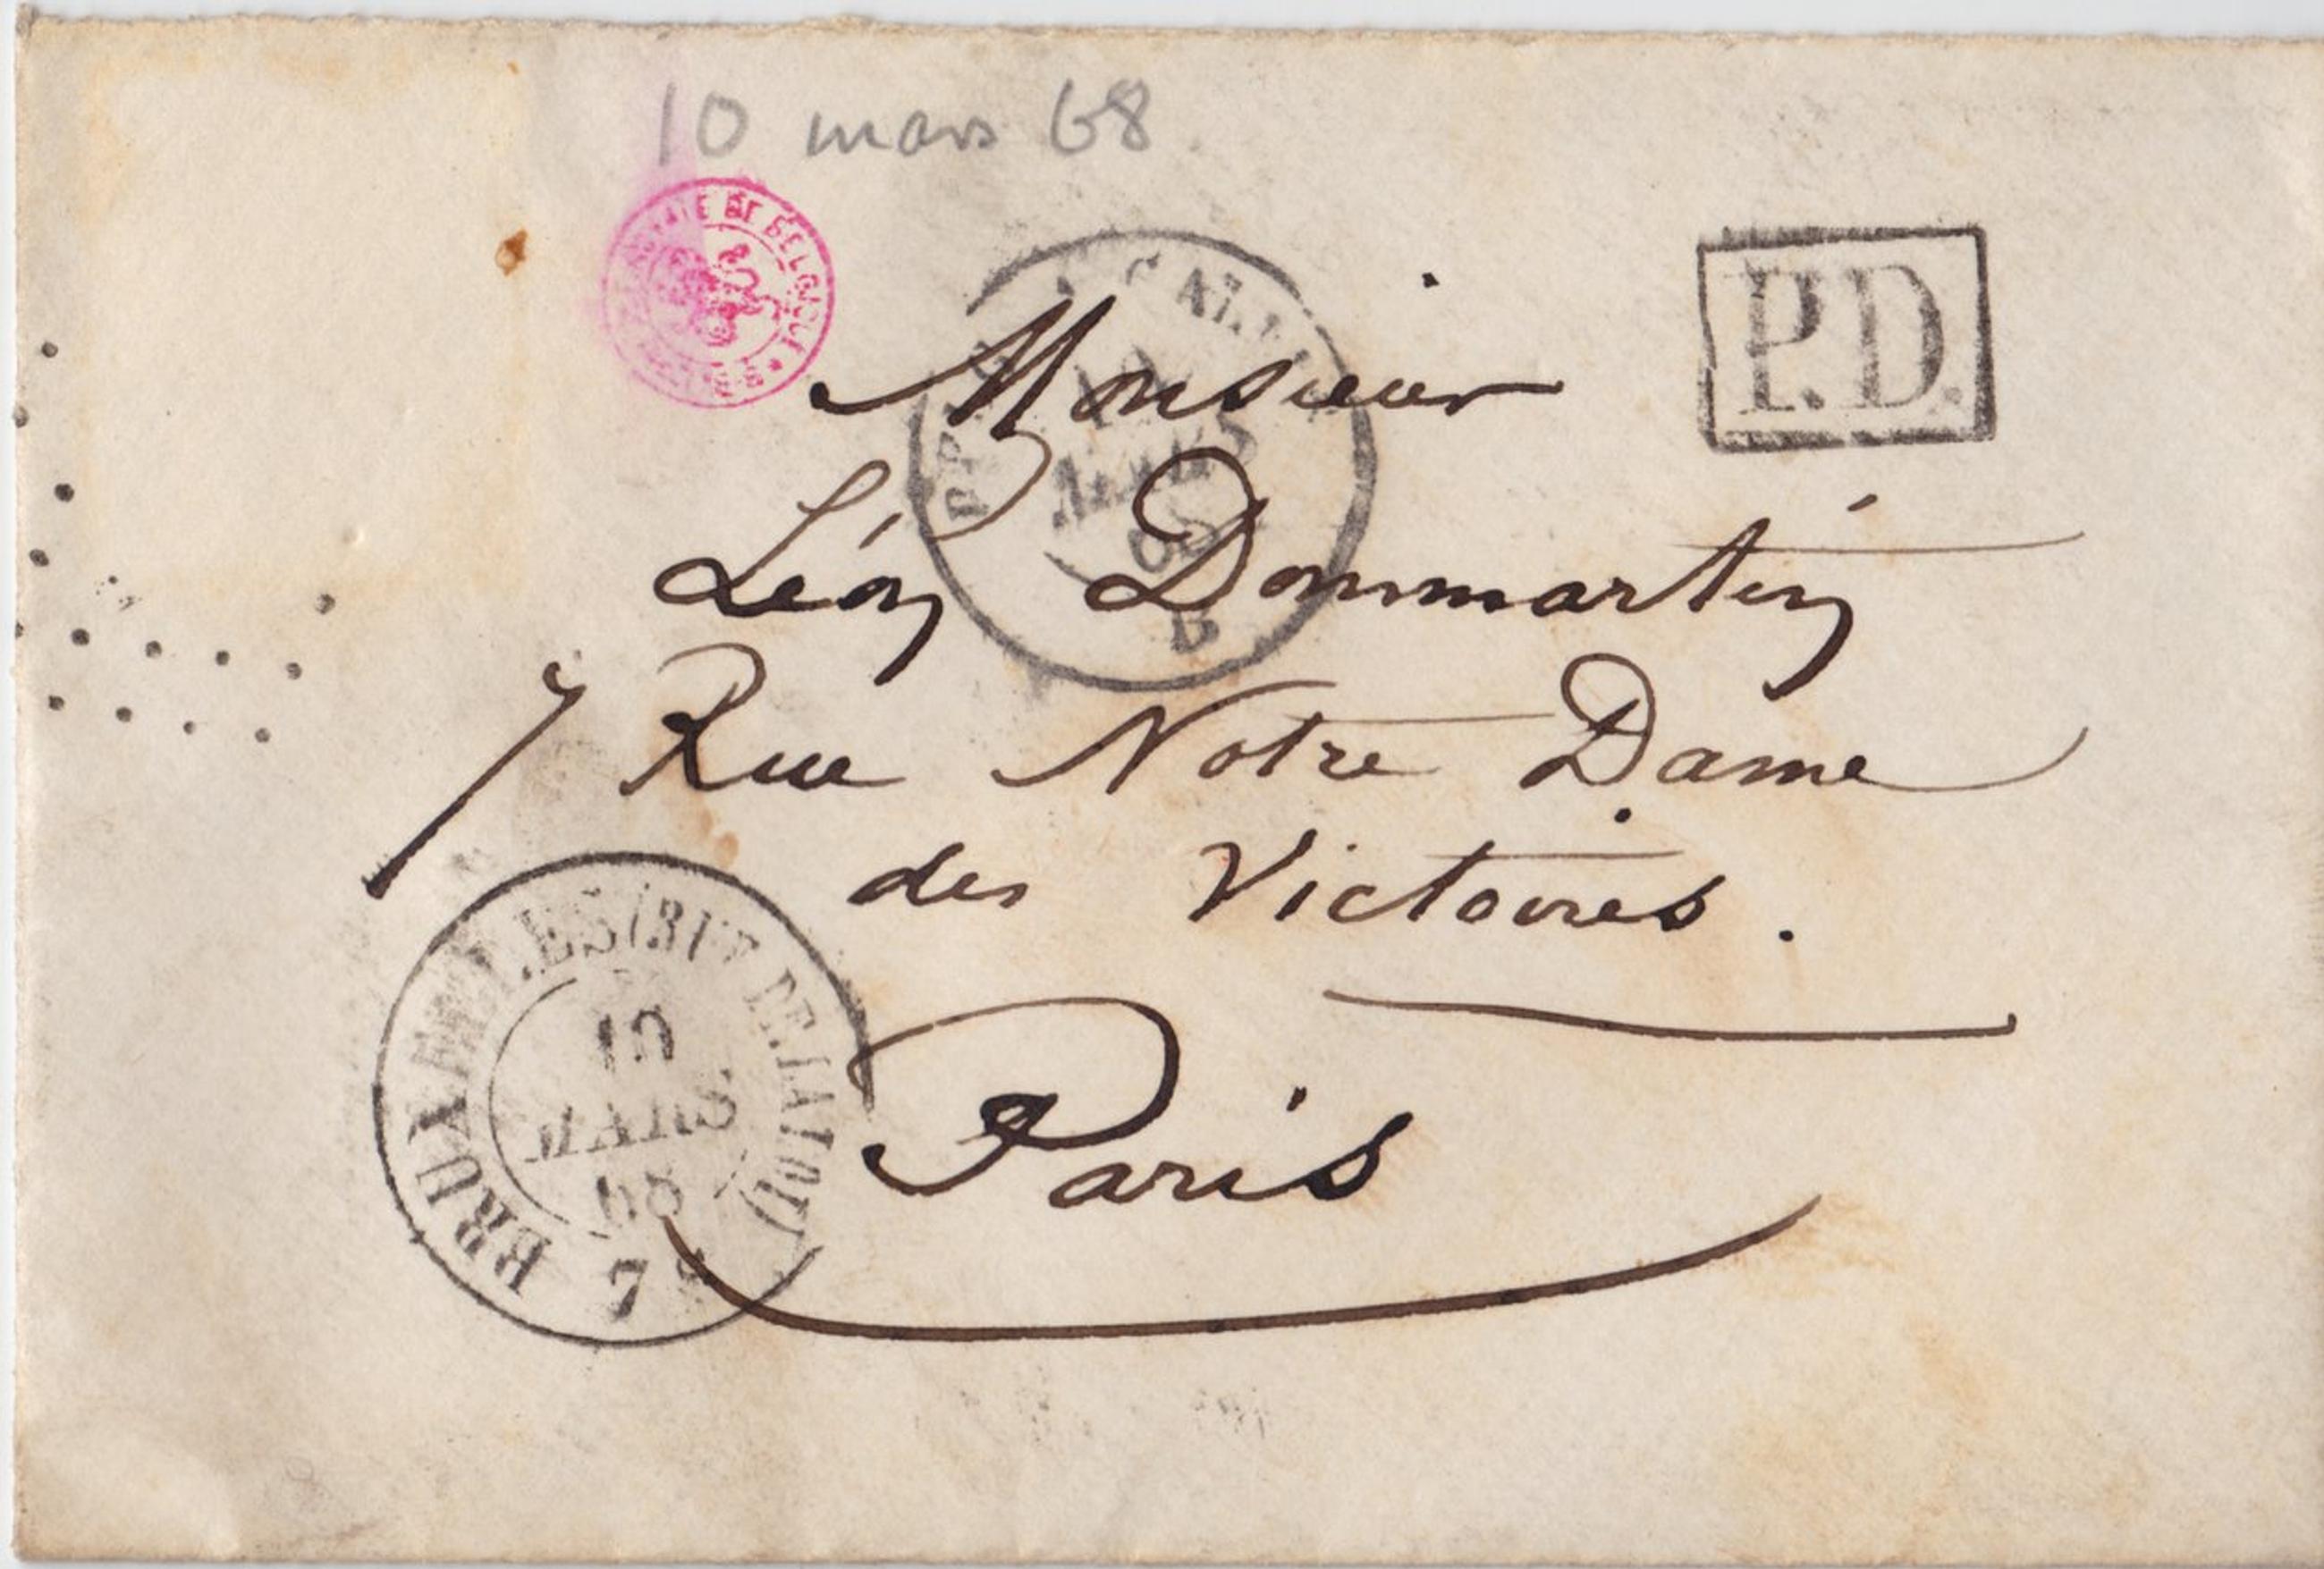 10 mars 68
DE BELGIQUE
CALAIS
MARS
68
P.D.
Monsieur
Léon Dommartin
7 Rue Notre Dame
des Victoires.
Paris
BRUXELLES (RUE DE LA
10
MARS
68
7